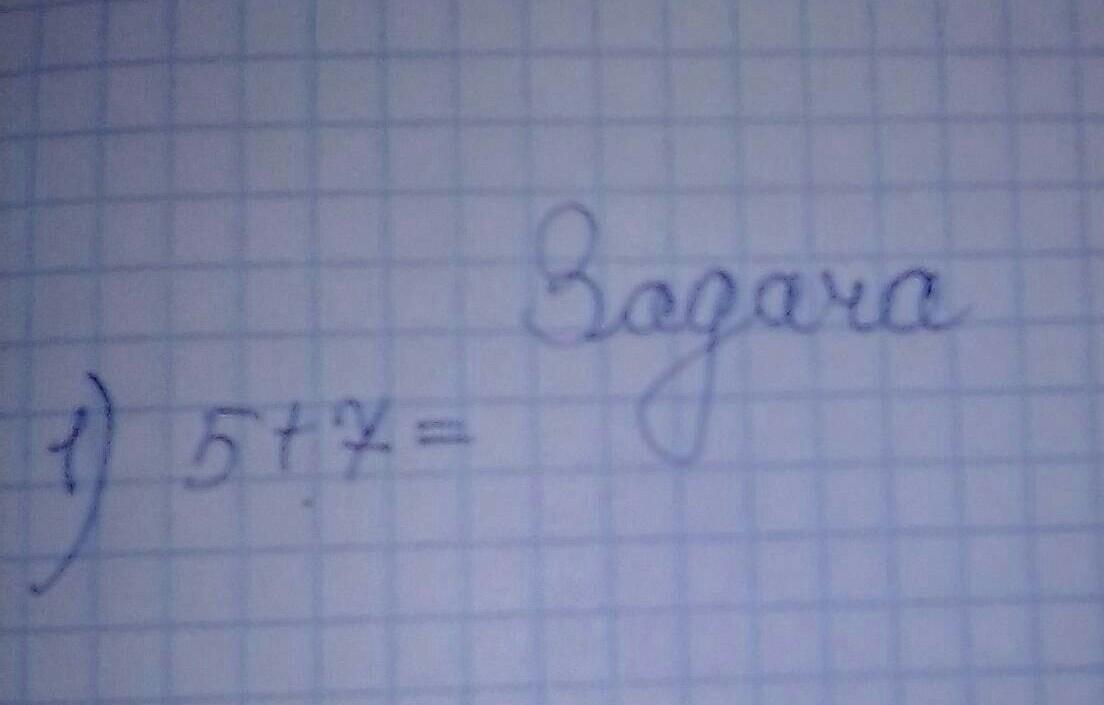 Задача
1) 5+7=